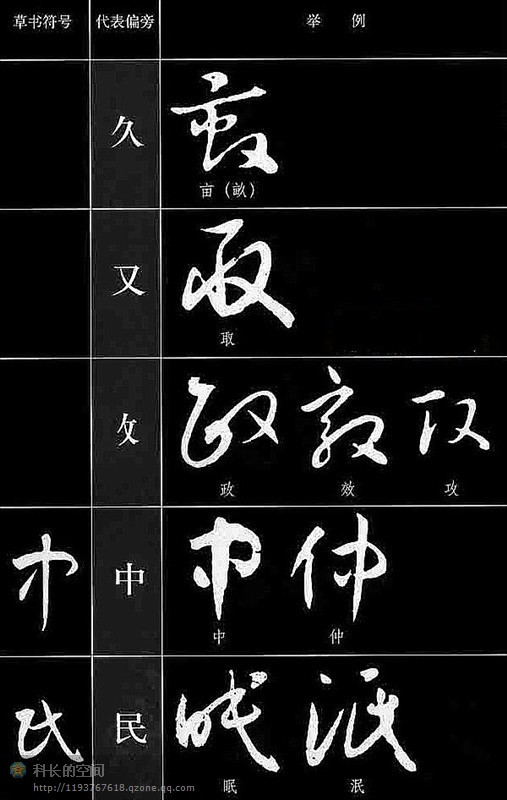 草书符号 代表偏旁 举 例
久
亩（畝）
又
取
攵
政 效 攻
中
中 仲
民
眠 泯
科长的空间
http://1193767618.qzone.qq.com